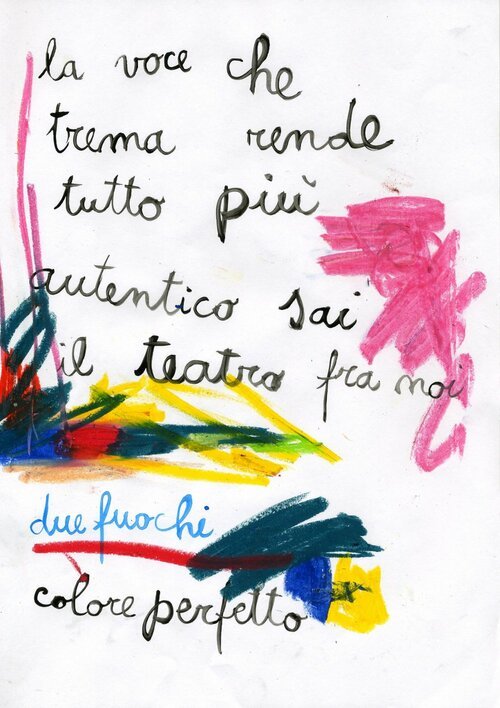 la voce che
trema rende
tutto più
autentico sai
il teatro fra noi
due fuochi
colore perfetto